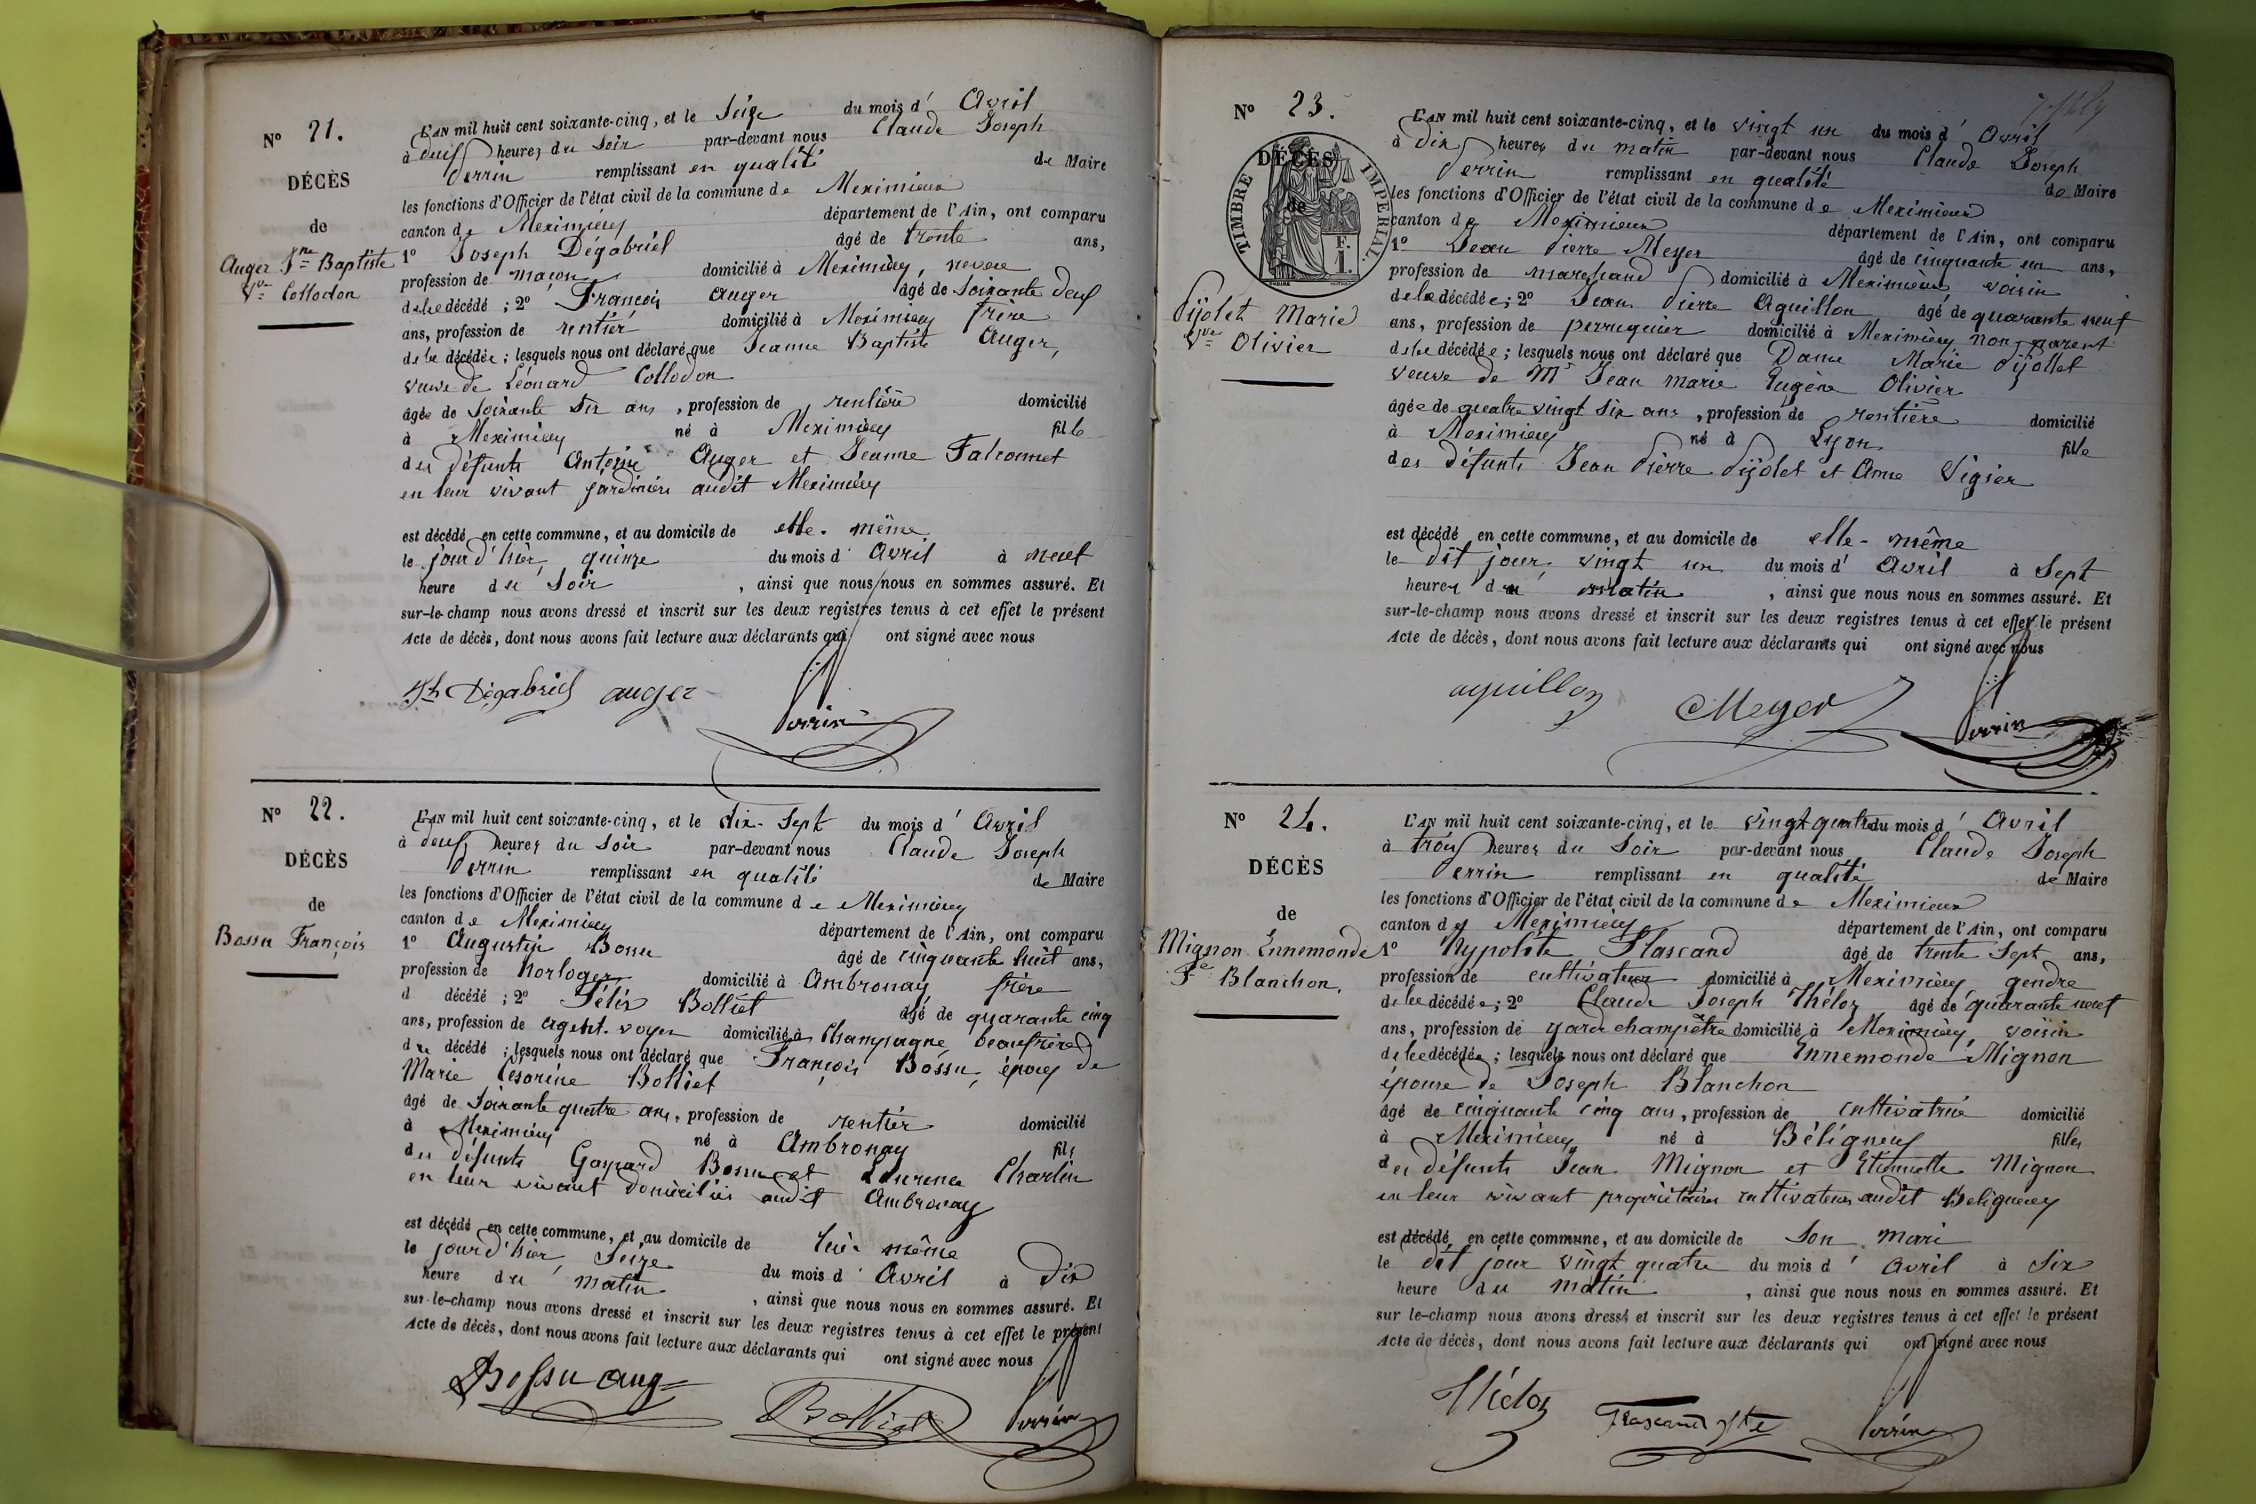 N° 21.
DÉCÈS
de
Auger Jne Baptiste
Vve Collodon
L'AN mil huit cent soixante-cinq, et le Seize du mois d' Avril
à deux heures du Soir par-devant nous Claude Joseph
Perrin remplissant en qualité de Maire
les fonctions d'Officier de l'état civil de la commune de Meximieux
canton de Meximieux département de l'Ain, ont comparu
1° Joseph Dégabriel âgé de trente ans,
profession de maçon domicilié à Meximieux, neveu
de la décédé ; 2° François Auger âgé de Soixante deux
ans, profession de rentier domicilié à Meximieux frère
de la décédée ; lesquels nous ont déclaré que Jeanne Baptiste Auger,
veuve de Léonard Collodon
âgée de Soixante Six ans, profession de rentière domicilié
à Meximieux né à Meximieux fille
des défunts Antoine Auger et Jeanne Falconnet
en leur vivant jardiniers audit Meximieux
est décédé en cette commune, et au domicile de elle-même
le jour d'hier, quinze du mois d' Avril à neuf
heure du Soir, ainsi que nous nous en sommes assuré. Et
sur-le-champ nous avons dressé et inscrit sur les deux registres tenus à cet effet le présent
Acte de décès, dont nous avons fait lecture aux déclarants qui ont signé avec nous
Jh Dégabriel auger Perrin
N° 22.
DÉCÈS
de
Bossu François
L'AN mil huit cent soixante-cinq, et le dix-Sept du mois d' Avril
à deux heures du Soir par-devant nous Claude Joseph
Perrin remplissant en qualité de Maire
les fonctions d'Officier de l'état civil de la commune de Meximieux
canton de Meximieux département de l'Ain, ont comparu
1° Augustin Bossu âgé de cinquante huit ans,
profession de horloger domicilié à Ambronay frère
d décédé ; 2° Félix Bolliet âgé de quarante cinq
ans, profession de agent-voyer domicilié à Champagne beaufrère
du décédé ; lesquels nous ont déclaré que François Bossu, époux de
Marie Césarine Bolliet
âgé de Soixante quatre ans, profession de rentier domicilié
à Meximieux né à Ambronay fils
des défunts Gaspard Bossu et Laurence Charlin
en leur vivant domiciliés audit Ambronay
est décédé en cette commune, et au domicile de lui-même
le jour d'hier, Seize du mois d' Avril à Dix
heure du matin, ainsi que nous nous en sommes assuré. Et
sur-le-champ nous avons dressé et inscrit sur les deux registres tenus à cet effet le présent
Acte de décès, dont nous avons fait lecture aux déclarants qui ont signé avec nous
Bossu aug Bolliet Perrin
N° 23.
DÉCÈS
de
TIMBRE IMPÉRIAL
Pijolet Marie
Vve Olivier
L'AN mil huit cent soixante-cinq, et le vingt un du mois d' Avril
à Dix heures du matin par-devant nous Claude Joseph
Perrin remplissant en qualité de Maire
les fonctions d'Officier de l'état civil de la commune de Meximieux
canton de Meximieux département de l'Ain, ont comparu
1° Jean Pierre Meyer âgé de cinquante un ans,
profession de marchand domicilié à Meximieux voisin
de la décédée ; 2° Jean Pierre Aguillon âgé de quarante neuf
ans, profession de perruquier domicilié à Meximieux non parent
de la décédée ; lesquels nous ont déclaré que Dame Marie Pijollet
veuve de Mr Jean Marie Eugène Olivier
âgée de quatre vingt Six ans, profession de rentière domicilié
à Meximieux né à Lyon fille
des défunts Jean Pierre Pijolet et Anne Vigier
est décédé en cette commune, et au domicile de elle-même
le dit jour, vingt un du mois d' Avril à Sept
heures du matin, ainsi que nous nous en sommes assuré. Et
sur-le-champ nous avons dressé et inscrit sur les deux registres tenus à cet effet le présent
Acte de décès, dont nous avons fait lecture aux déclarants qui ont signé avec nous
aguillon Meyer Perrin
N° 24.
DÉCÈS
de
Mignon Ennemonde
Fe Blanchon,
L'AN mil huit cent soixante-cinq, et le vingt quatre du mois d' Avril
à trois heures du Soir par-devant nous Claude Joseph
Perrin remplissant en qualité de Maire
les fonctions d'Officier de l'état civil de la commune de Meximieux
canton de Meximieux département de l'Ain, ont comparu
1° hypolite Flascand âgé de trente Sept ans,
profession de cultivateur domicilié à Meximieux, gendre
de la décédée ; 2° Claude Joseph Théloz âgé de quarante neuf
ans, profession de garde champêtre domicilié à Meximieux, voisin
de la décédée ; lesquels nous ont déclaré que Ennemonde Mignon
épouse de Joseph Blanchon
âgé de cinquante cinq ans, profession de cultivatrice domicilié
à Meximieux né à Béligneux filles
des défunts Jean Mignon et Etiennette Mignon
en leur vivant propriétaires cultivateurs audit Beligneux
est décédé en cette commune, et au domicile de Son mari
le dit jour vingt quatre du mois d' Avril à Six
heure du matin, ainsi que nous nous en sommes assuré. Et
sur le-champ nous avons dressé et inscrit sur les deux registres tenus à cet effet le présent
Acte de décès, dont nous avons fait lecture aux déclarants qui ont signé avec nous
Théloz Perrin